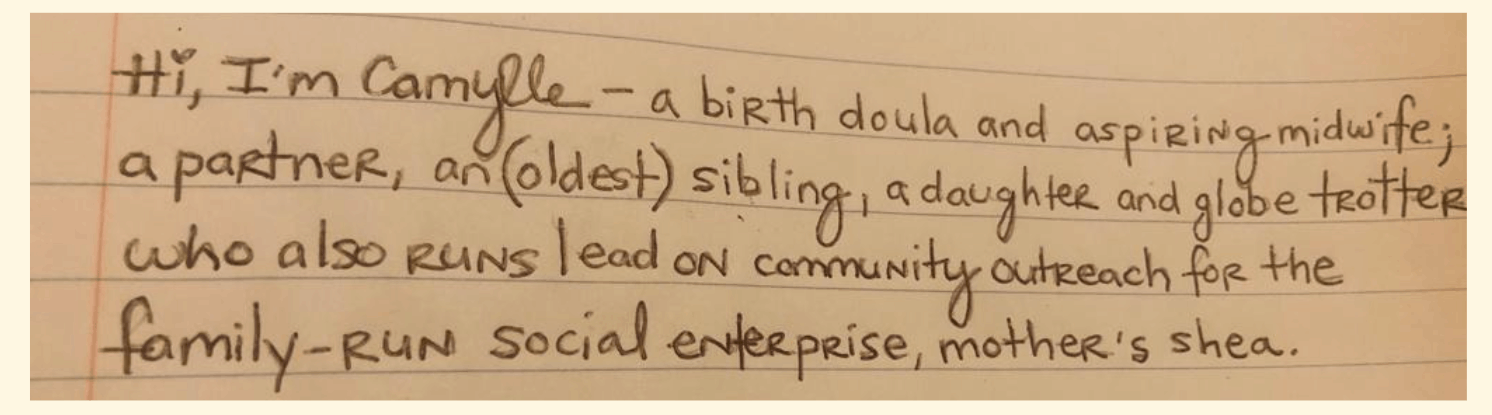 Hi, I'm Camylle - a birth doula and aspiring midwife;
a partner, an (oldest) sibling, a daughter and globe trotter
who also runs lead on community outreach for the
family-run social enterprise, mother's shea.